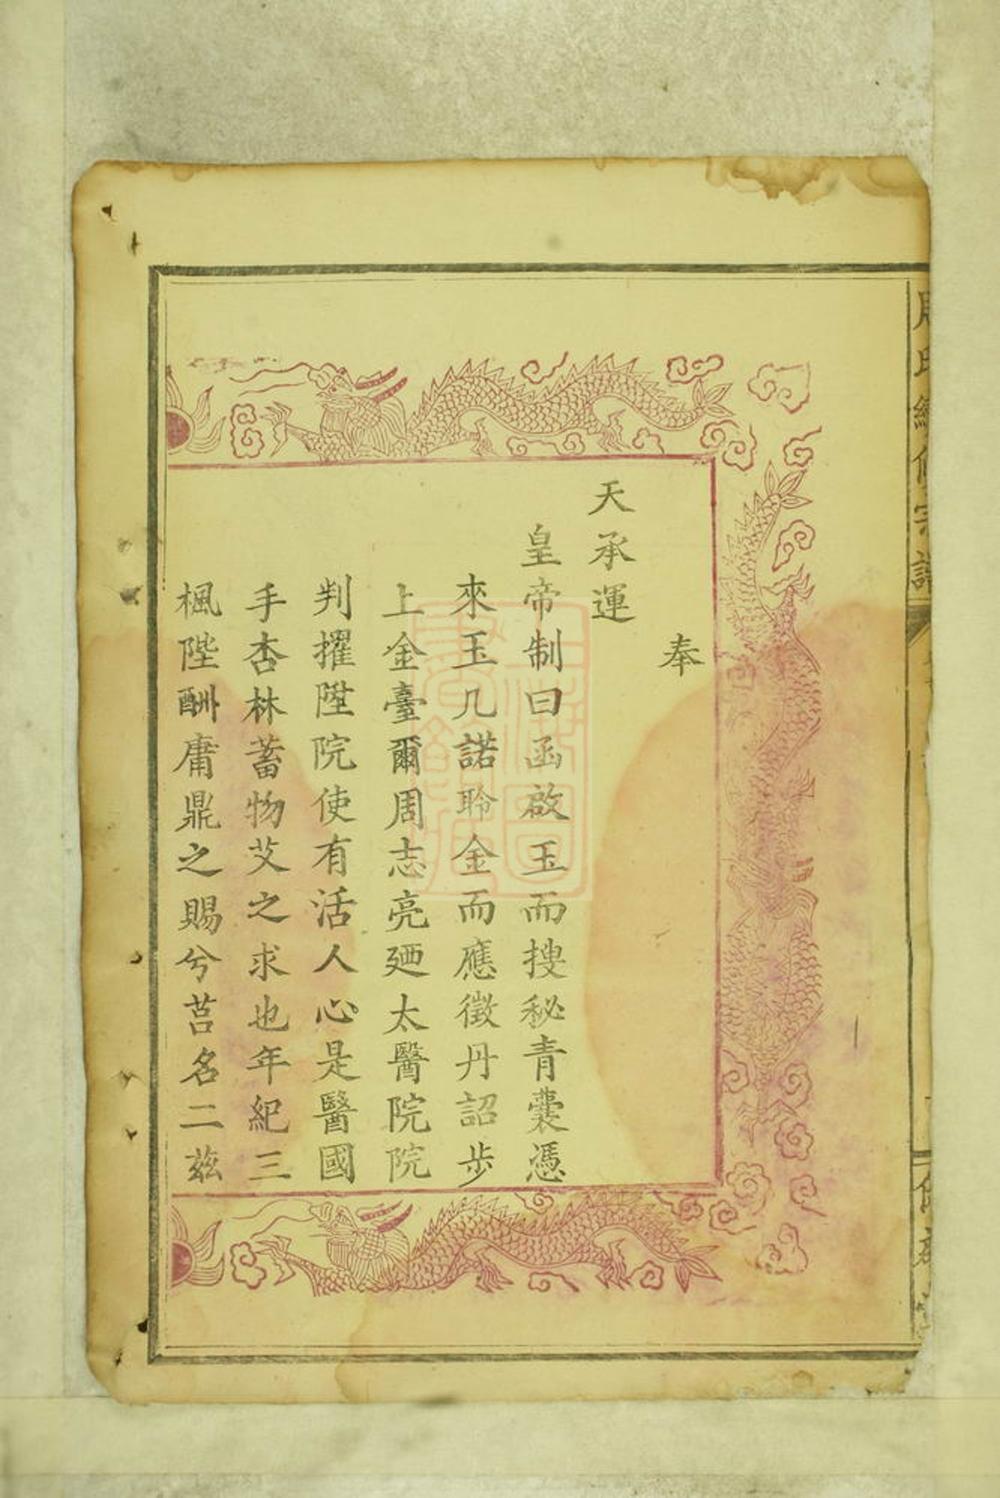 奉
天承運
皇帝制曰函啟玉而搜秘青囊憑
來玉几諾聆金而應徵丹詔步
上金臺爾周志亮廼太醫院院
判擢陞院使有活人心是醫國
手杏林蓄物艾之求也年紀三
楓陛酬庸鼎之賜兮莒名二茲